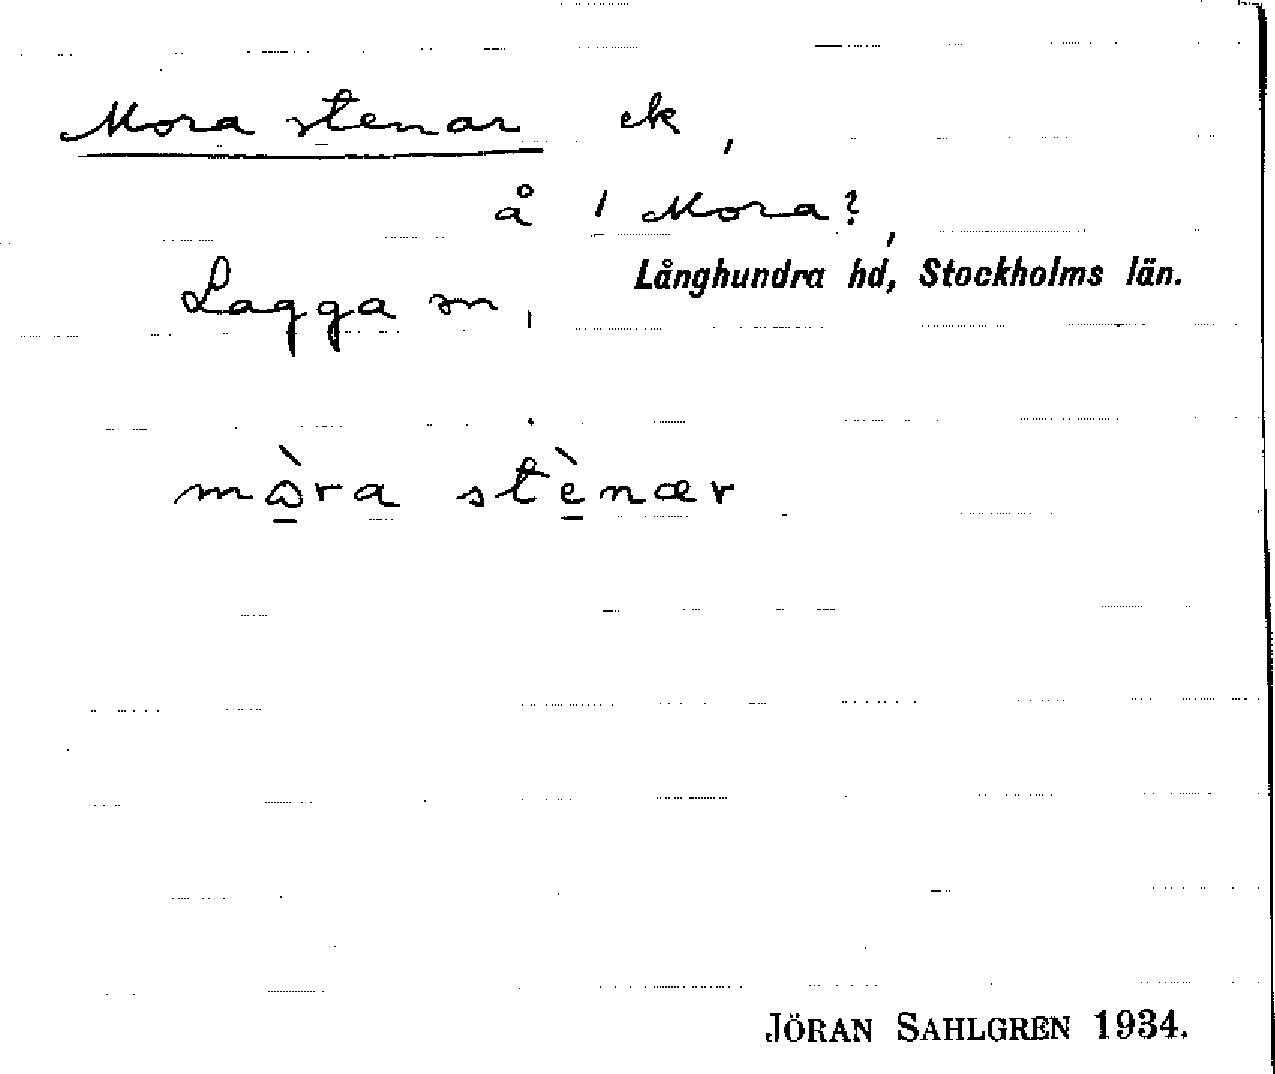 Mora stenar ek,
å 1 Mora?,
Långhundra hd, Stockholms län.
Lagga sn,
mòra stènær
JÖRAN SAHLGREN 1934.